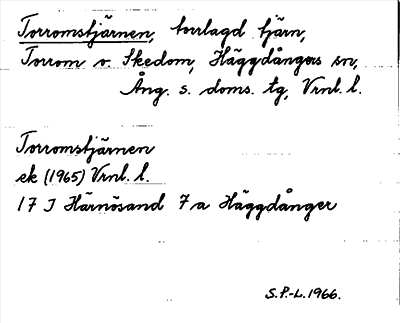 Torromstjärnen, torrlagd tjärn,
Torrom o. Skedom, Häggdångers sn,
Ång. s. doms. tg, Vrnl. l.
Torromstjärnen
ek (1965) Vrnl. l.
17 J Härnösand 7 a Häggdånger
S.P.-L. 1966.